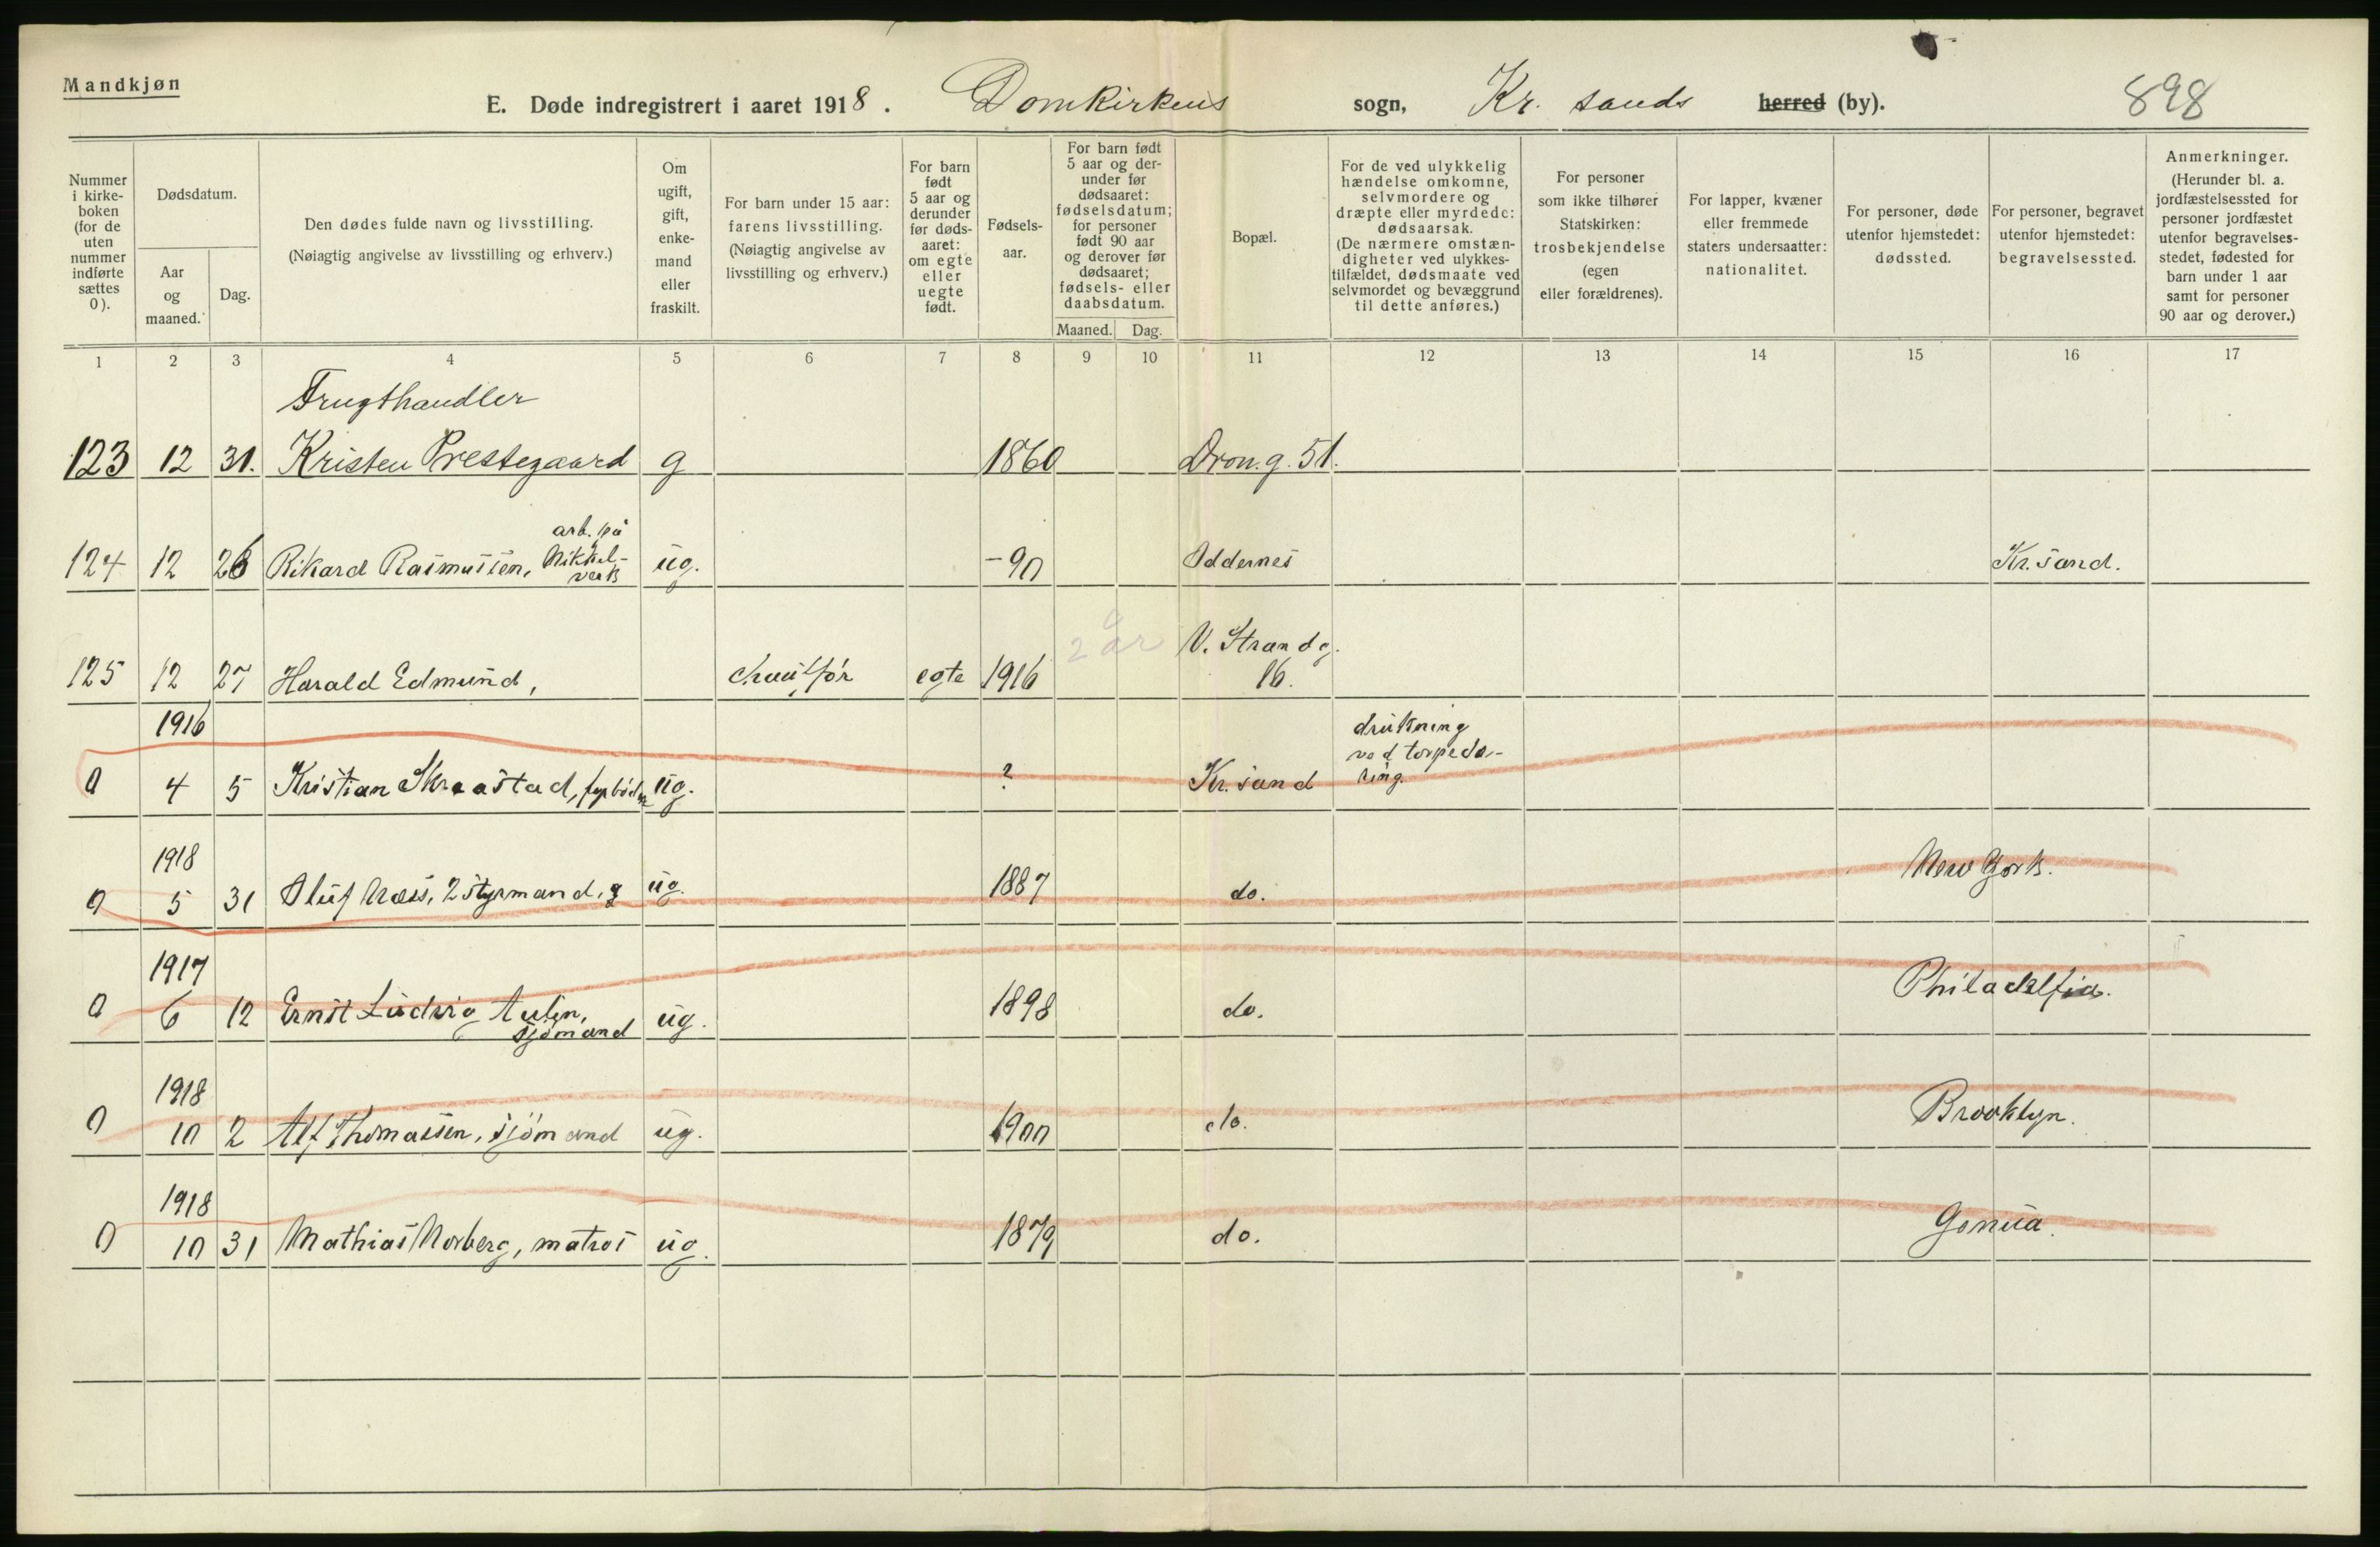 Mandkjøn
E. Døde indregistrert i aaret 1918. Domkirkens sogn, Kr. sands herred (by). 898
Nummer i kirke- boken (for de uten nummer indførte sættes 0).
Dødsdatum.
Aar og maaned.
Dag.
Den dødes fulde navn og livsstilling.
(Nøiagtig angivelse av livsstilling og erhverv.)
Om ugift, gift, enke- mand eller fraskilt.
For barn under 15 aar: farens livsstilling. (Nøiagtig angivelse av livsstilling og erhverv.)
For barn født 5 aar og derunder før døds- aaret: om egte eller uegte født.
Fødsels- aar.
For barn født 5 aar og der- under før dødsaaret: fødselsdatum; for personer født 90 aar og derover før dødsaaret; fødsels- eller daabsdatum.
Maaned. Dag.
Bopæl.
For de ved ulykkelig hændelse omkomne, selvmordere og dræpte eller myrdede: dødsaarsak. (De nærmere omstæn- digheter ved ulykkes- tilfældet, dødsmaate ved selvmordet og bevæggrund til dette anføres.)
For personer som ikke tilhører Statskirken: trosbekjendelse (egen eller forældrenes).
For lapper, kvæner eller fremmede staters undersaatter: nationalitet.
For personer, døde utenfor hjemstedet: dødssted.
For personer, begravet utenfor hjemstedet: begravelsessted.
Anmerkninger. (Herunder bl. a. jordfæstelsessted for personer jordfæstet utenfor begravelses- stedet, fødested for barn under 1 aar samt for personer 90 aar og derover.)
1 2 3 4 5 6 7 8 9 10 11 12 13 14 15 16 17
Frugthandler
123 12 31. Kristen Prestegaard g 1860 Dron.g. 51.
arb. på
124 12 26 Rikard Rasmussen, Nikkel- ug. -90 Oddernes Kr.sand.
verk
2 år V. Strandg.
125 12 27 Harald Edmund, chauffør egte 1916 16.
1916 drukning
ved torpede-
0 4 5 Kristian Skraastad, fyrbøder ug. ? Kr.sand ring.
1918
0 5 31 Oluf Næss, 2 styrmand, ug. 1887 do. New York.
1917
0 6 12 Ernst Ludvig ug. 1898 do. Philadelfia.
sjømand
1918
0 10 2 Alf Thomassen, sjømand ug. 1900 do. Brooklyn.
1918
0 10 31 Mathias Norberg, matros ug. 1879 do. Genua.